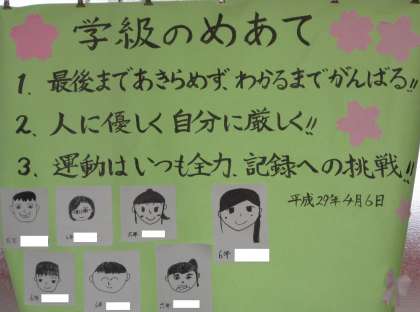 学級のめあて
1. 最後まであきらめず、わかるまでがんばる!!
2. 人に優しく自分に厳しく!!
3. 運動はいつも全力、記録への挑戦!!
平成29年4月6日
6年
6年
6年
6年
6年
6年